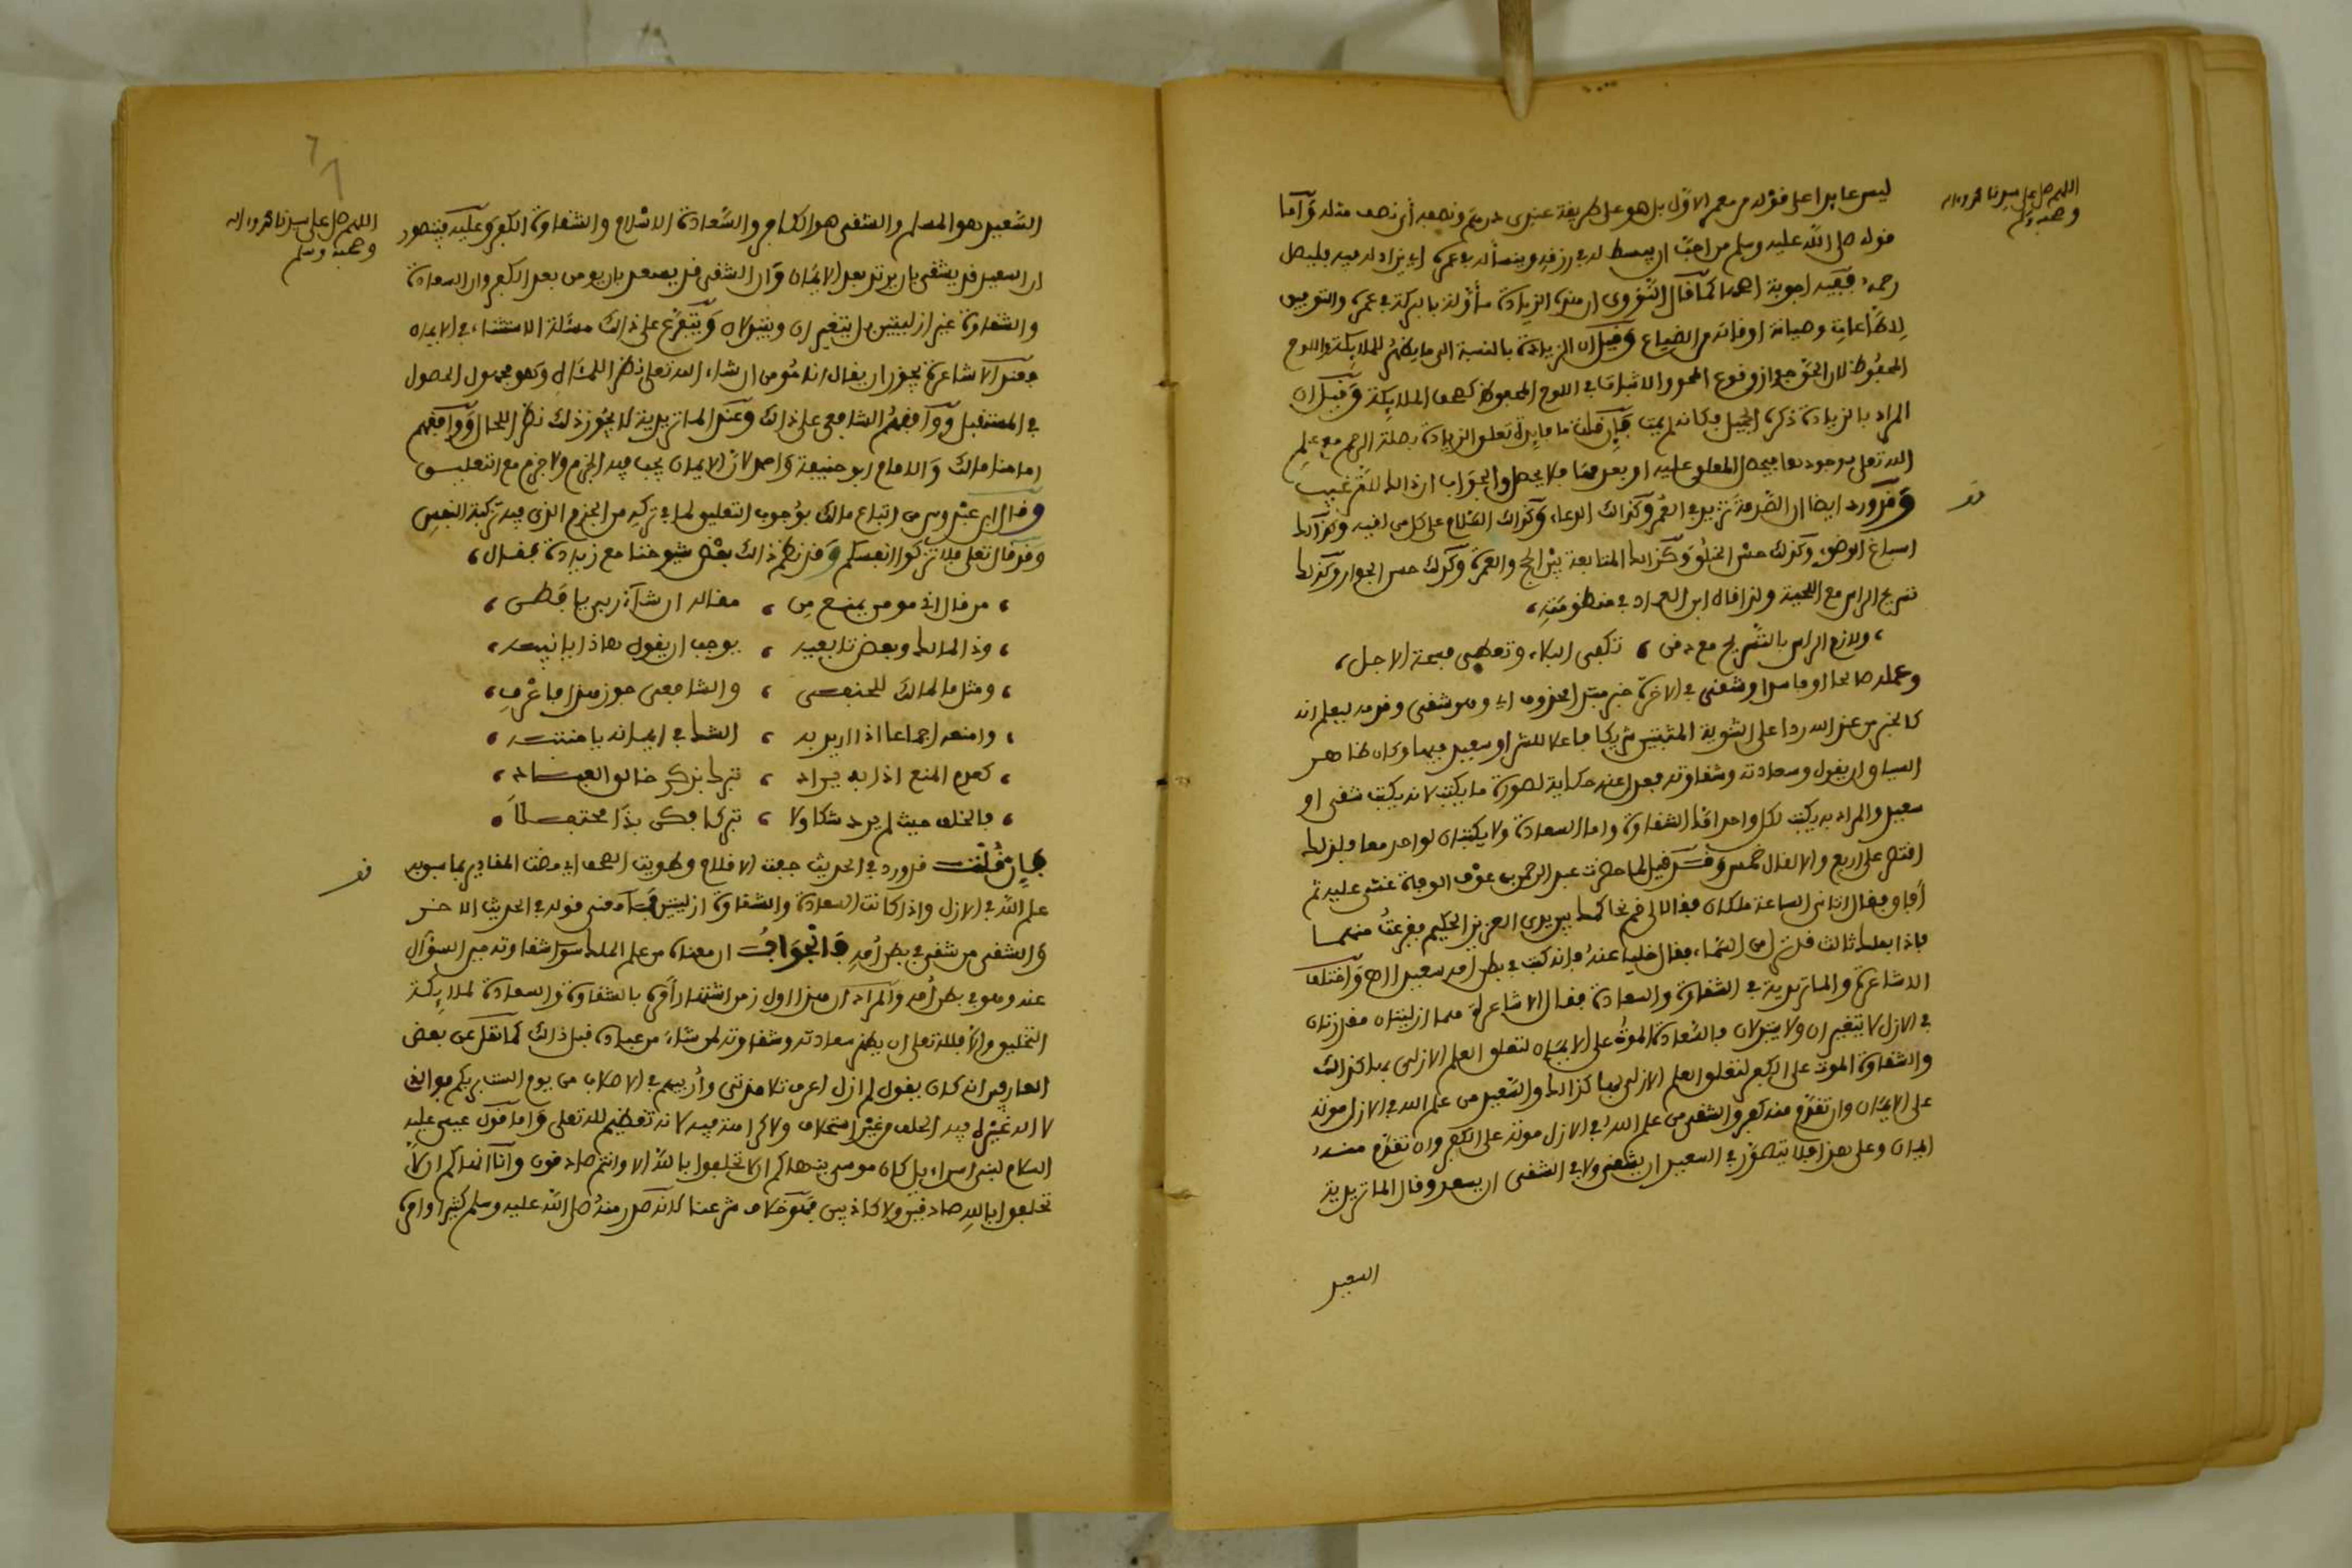 اللهم صل على سيدنا محمد وآله
وصحبه وسلم
ليس عايدا على قوله من معمر الأول بل هو على طريقة عندي درهم ونصفه أي نصف مثله وأما
قوله صلى الله عليه وسلم من أحب أن يبسط له في رزقه وينسأ له في عمره أي يزاد له فيه فليصل
رحمه ففيه أجوبة أحدها كما قال النووي أن هذه الزيادة مأولة بالبركة في عمره والتوفيق
للطاعات وصيانة أوقاته من الضياع وقيل أن الزيادة بالنسبة الى ما يظهر للملائكة واللوح
المحفوظ لأن الحق جواز وقوع المحو والاثبات في اللوح المحفوظ كصحف الملائكة وقيل أن
المراد بالزيادة ذكره الجميل فكأنه لم يمت فإن قلت ما فايدة تعلق الزيادة بصلة الرحم مع علم
الله تعلى بوجودها فيحصل المعلق عليه أو بعدمها فلا يحصل والجواب أن ذالك للترغيب
قف
وقد ورد ايضا أن الصدقة تزيد في العمر وكذالك الدعاء وكذالك السلام على كل من لقيه وكذالك
اسباغ الوضوء وكذلك حسن الخلق وكذالك المتابعة بين الحج والعمرة وكذلك حسن الجوار وكذلك
تسريح الراس مع اللحية ولذا قال ابن العماد في منظومته،
، ولازم الراس بالتسريح مع دقن ، تكفى البلاء وتعطى فسحة الاجل،
وعمله صالحا أو فاسدا وشقي في الآخرة خبر مبتدإ محذوف أي وهو شقي وقدمه ليعلم أنه
كالخير من عند الله ردا على الثنوية المثبتين شريكا فاعلا للشر أو سعيد فيها وكان ظاهر
السياق أن يقول وسعادته وشقاوته فعدل عنه حكاية لصورة ما يكتب لأنه يكتب شقي أو
سعيد والمراد به يكتب لكل واحد إما الشقاوة وإما السعادة ولا يكتبان لواحد معا فلذلك
اقتصر على أربع والا لقال خمس وقد قيل لما حضرت عبد الرحمن بن عوف الوفاة غشي عليه ثم
أفاق فقال أتاني الساعة ملكان فقالا لي قم نحاكمك بين يدي العزيز الحكيم ففزعت منهما
فاذا بملك ثالث قد نزل من السماء فقال خليا عنه فإنه كتب في بطن أمه سعيد الاه واختلف
الاشاعرة والماتريدية في الشقاوة والسعادة فقال الاشاعرة هما أزليتان مقدرتان
في الازل لا يتغيران ولا يتبدلان فالسعادة الموت على الايمان لتعلق العلم الازلي بها كذالك
والشقاوة الموت على الكفر لتعلق العلم الازلي بها كذالك والسعيد من علم الله في الازل موته
على الايمان وإن تقدم منه كفر والشقي من علم الله في الازل موته على الكفر وإن تقدم منه
ايمان وعلى هذا فلا يتصور في السعيد أن يشقى ولا في الشقي أن يسعد وقال الماتريدية
السعيد
اللهم صل على سيدنا محمد وآله
وصحبه وسلم
السعيد هو المسلم والشقي هو الكافر والسعادة الاسلام والشقاوة الكفر وعليه فيتصور
أن السعيد قد يشقى بان يرتد بعد الايمان وأن الشقي قد يسعد بان يومن بعد الكفر وأن السعادة
والشقاوة غير أزليتين بل يتغيران ويتبدلان ويتفرع على ذالك مسئلة الاستثناء في الايمان
فعند الاشاعرة يجوز أن يقال أنا مومن إن شاء الله تعلى نظرا للمئال وهو مجهول الحصول
في المستقبل ووافقهم الشافعي على ذالك وعند الماتريدية لا يجوز ذلك نظرا للحال ووافقهم
امامنا مالك والامام ابو حنيفة واحمد لأن الايمان يجب فيه الجزم ولا جزم مع التعليق
وقال ابن عبدوس من اتباع مالك بوجوب التعليق لما في تركه من الجزم الذي فيه تزكية النفس
وقد قال تعلى فلا تزكوا انفسكم وقد نظم ذالك بعض شيوخنا مع زيادة فقال،
، من قال اني مومن يمنع من ، مقاله ان شاء ربي يا فطن ،
، وذا لمالك وبعض تابعيه ، يوجب أن يقول هاذا يا نبيه ،
، ومثل ما لمالك للحنفي ، والشافعي جوز هذا فاعرف ،
، وامنعه اجماعا اذا اريد به ، الشك في ايمانه يا منتبه ،
، كعدم المنع اذا به يراد ، تبرك بذكر خالق العباد ،
، فالخلف حيث لم يرد شكا ولا ، تبركا فكن بذا محتفلا ،
قف
فإن قلت قد ورد في الحديث جفت الاقلام وطويت الصحف أي مضت المقادير بما سبق به
علم الله في الازل واذا كانت السعادة والشقاوة أزليتين فما معنى قوله في الحديث الاخر
والشقي من شقي في بطن أمه فالجواب أن معناه من علم الملك سو الشقاوته حين السؤال
عنه وهو في بطن أمه والمراد أن هذا اول زمن اشتهار أمره بالشقاوة والسعادة لملائكة
التخليق والا فلله تعلى أن يظهر سعادته وشقاوته لمن شاء من عباده قبل ذالك كما نقل عن بعض
العارفين أنه كان يقول لم أزل أعرف تلامذتي وأربيهم في الاصلاب من يوم ألست بربكم فوالذي
لا اله غيره فيه الحلف من غير استحلاف ولا كراهة فيه لأنه تعظيم لله تعلى وأما قول عيسى عليه
السلام لبني اسراءيل كان موسى ينهاكم أن تحلفوا بالله الا وانتم صادقون وأنا أنهاكم أن لا
تحلفوا بالله صادقين ولا كاذبين فهو خلاف شرعنا لأنه صدر منه صلى الله عليه وسلم كثيرا وأمره